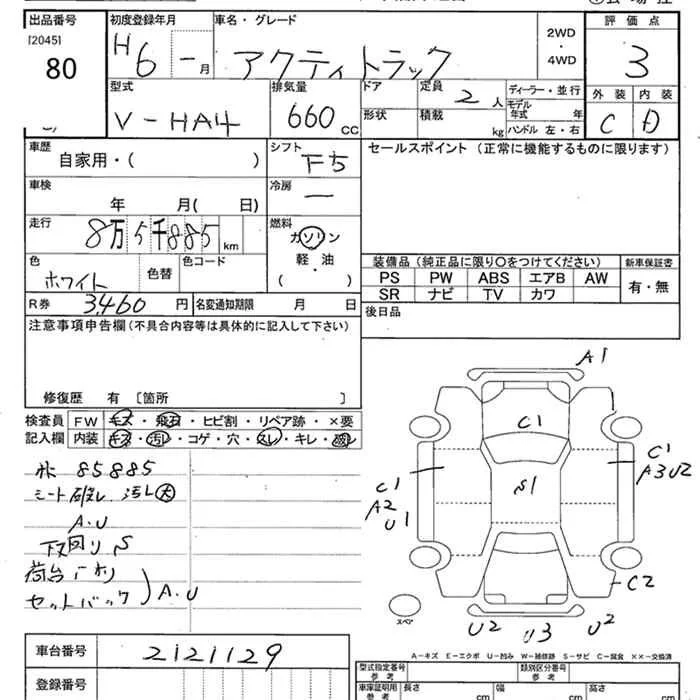 出品番号 初度登録年月 車名・グレード 評価点
[2045] 80 H6-月 アクティトラック 2WD・4WD 3
型式 V-HA4 排気量 660 CC ドア 定員 2人 ディーラー・並行 外装 C 内装 D
形状 積載 kg モデル年式 年 ハンドル 左・右
車歴 自家用・( ) シフト F5 セールスポイント (正常に機能するものに限ります)
車検 年 月( 日) 冷房 ー
走行 8万5千885 km 燃料 ガソリン 軽・油 ( ・ )
色 ホワイト 色替 色コード
装備品 (純正品に限り○をつけてください) 新車保証書
PS PW ABS エアB AW 有・無
SR ナビ TV カワ
R券 3,460円 名変通知期限 月 日 後日品
注意事項申告欄 (不具合内容等は具体的に記入して下さい)
修復歴 有 [箇所 ]
検査員 FW キズ・飛石・ヒビ割・リペア跡・×要
記入欄 内装 キズ・汚レ・コゲ・穴・スレ・キレ・破レ
A1
C1
S1
C1 A2 U1
C1 A3 U2
C2
U2 U3 U2
スペア
85885
シート破レ 汚レ大
A.U
下回りS
荷台
セットバック A.U
A-キズ E-エクボ U-凹み W-補修跡 S-サビ C-腐食 ××-交換済
車台番号 2121129
登録番号
型式指定番号 参考 類別区分番号 参考
車庫証明用 参考 長さ cm 幅 cm 高さ cm